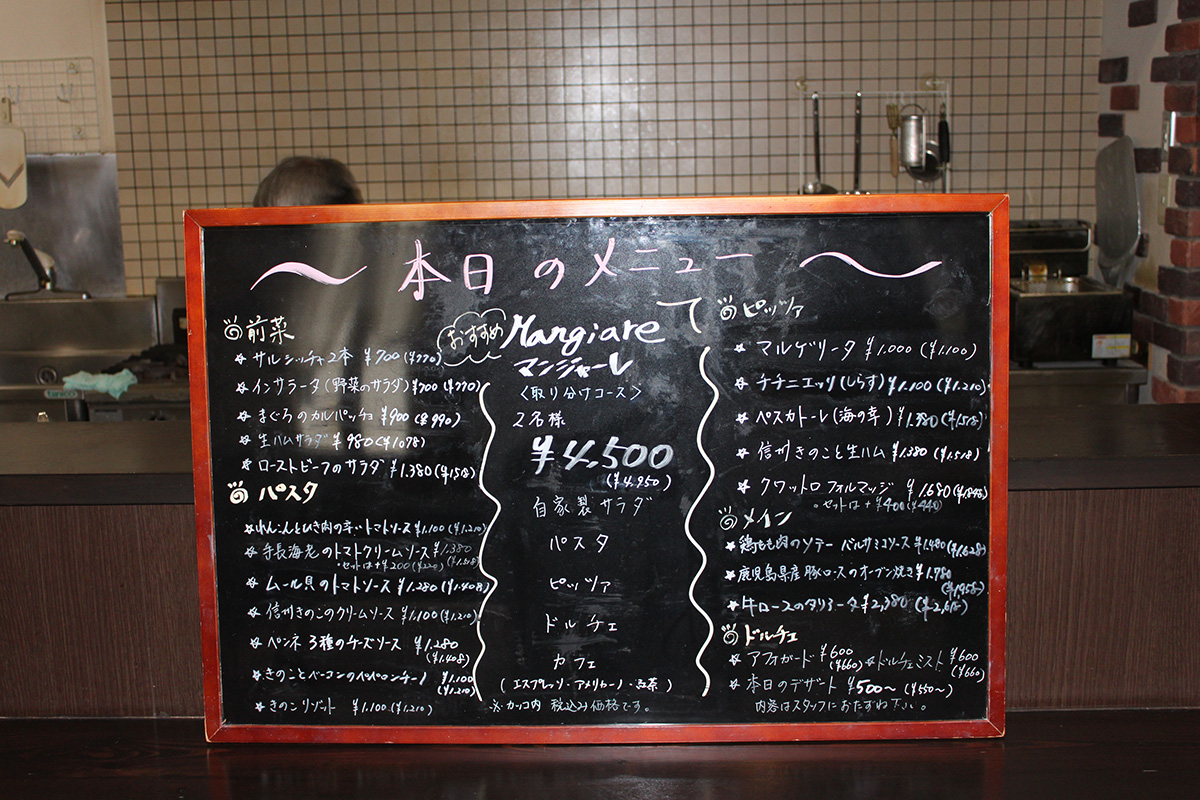 本日のメニュー
前菜
サルシッチャ2本 ¥700(¥770)
インサラータ(野菜のサラダ)¥700(¥770)
まぐろのカルパッチョ ¥900(¥990)
生ハムサラダ ¥980(¥1078)
ローストビーフのサラダ ¥1.380(¥1,518)
パスタ
れんこんとひき肉の辛いトマトソース ¥1.100(¥1.210)
手長海老のトマトクリームソース ¥1.380
・セットは+¥200(¥220) (¥1.518)
ムール貝のトマトソース ¥1.280(¥1.408)
信州きのこのクリームソース ¥1,100(¥1.210)
ペンネ 3種のチーズソース ¥1.280
(¥1.408)
きのことベーコンのペペロンチーノ ¥1.100
(¥1.210)
きのこリゾット ¥1.100(¥1.210)
おすすめ
Mangiare
マンジャーレ
〈取り分けコース〉
2名様
¥4,500
(¥4.950)
自家製サラダ
パスタ
ピッツァ
ドルチェ
カフェ
(エスプレッソ・アメリカーノ・紅茶)
※カッコ内 税込み価格です。
ピッツァ
マルゲリータ ¥1.000(¥1.100)
チチニエッリ(しらす)¥1.100(¥1.210)
ペスカトーレ(海の幸)¥1.380(¥1,518)
信州きのこと生ハム ¥1.380(¥1.518)
クワットロフォルマッジ ¥1.680(¥1.848)
・セットは+¥400(¥440)
メイン
鶏もも肉のソテー バルサミコソース ¥1.480(¥1.628)
鹿児島県産豚ロースのオーブン焼き ¥1.780
(¥1.958)
牛ロースのタリアータ ¥2,380(¥2,618)
ドルチェ
アフォガード ¥600 ドルチェミスト ¥600
(¥660) (¥660)
本日のデザート ¥500〜(¥550〜)
内容はスタッフにおたずね下さい。